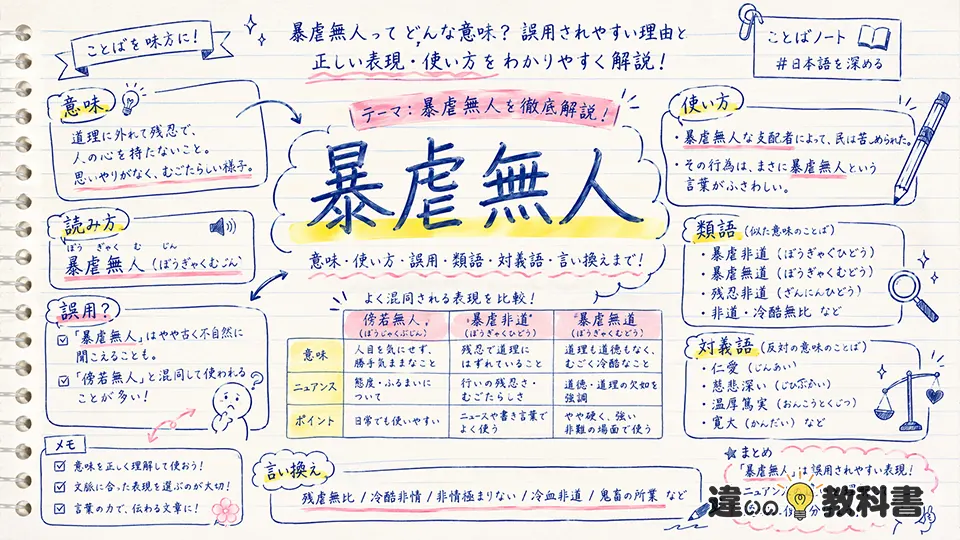 ことばを味方に!
暴虐無人ってどんな意味? 誤用されやすい理由と
正しい表現・使い方をわかりやすく解説!
ことばノート
#日本語を深める
テーマ:暴虐無人を徹底解説!
暴虐無人
意味・使い方・誤用・類語・対義語・言い換えまで!
意味
道理に外れて残忍で、
人の心を持たないこと。
思いやりがなく、むごたらしい様子。
読み方
ぼう ぎゃく む じん
暴虐無人 (ぼうぎゃくむじん)
誤用?
「暴虐無人」はやや古く不自然に
聞こえることも。
「傍若無人」と混同して使われる
ことが多い!
?
メモ
意味を正しく理解して使おう!
文脈に合った表現を選ぶのが大切!
言葉の力で、伝わる文章に!
よく混同される表現を比較!
傍若無人 暴虐非道 暴虐無道
(ぼうじゃくぶじん) (ぼうぎゃくひどう) (ぼうぎゃくむどう)
意味 人目を気にせず、 残忍で道理に 道理も道徳もなく、
勝手気ままなこと はずれていること むごく冷酷なこと
ニュアンス 態度・ふるまいに 行いの残忍さ・ 道徳・道理の欠如を
ついて むごたらしさ 強調
ポイント 日常でも使いやすい ニュースや書き言葉で やや硬く、強い
よく使う 非難の場面で使う
言い換え
残虐無比 / 冷酷非情 / 非情極まりない / 冷血非道 / 鬼畜の所業 など
使い方
・暴虐無人な支配者によって、民は苦しめられた。
・その行為は、まさに暴虐無人という
言葉がふさわしい。
類語 (似た意味のことば)
・暴虐非道 (ぼうぎゃくひどう)
・暴虐無道 (ぼうぎゃくむどう)
・残忍非道 (ざんにんひどう)
・非道・冷酷無比 など
対義語 (反対の意味のことば)
・仁愛 (じんあい)
・慈悲深い (じひぶかい)
・温厚篤実 (おんこうとくじつ)
・寛大 (かんだい) など
まとめ
「暴虐無人」は誤用されやすい表現!
ニュアン
違いの教科書